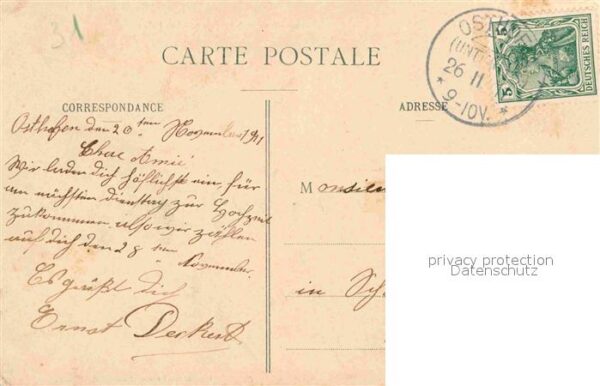 31
CARTE POSTALE
CORRESPONDANCE
ADRESSE
OSTHOFEN
26 11
* 9-10V. *
5 5
DEUTSCHES REICH
Osthofen den 26 ten November 1911
Chere Amie
Wir laden dich höflichst ein, für
am nächsten dienstag zur Hochzeit
zukommen. also wir zählen
auf dich den 28 ten
November.
Es grüßt dich
Ernst Deckert
Monsieur
in Sch
privacy protection
Datenschutz